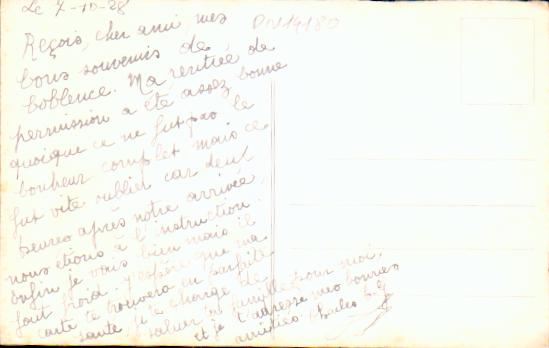 Le 7-10-28
DIV14180
Reçois, cher ami mes
bons souvenirs de
Coblence. Ma rentrée de
permission a été assez bonne
quoique ce ne fut pas le
bonheur complet mais ce
fut vite oublier car deux
heures après notre arrivée,
nous étions à l'instruction.
Enfin je vais bien mais il
fait froid. J'espère que ma
carte te trouvera en parfaite
santé, je te charge de
saluer ta famille pour moi,
et je t'adresse mes bonnes
amitiés. Charles